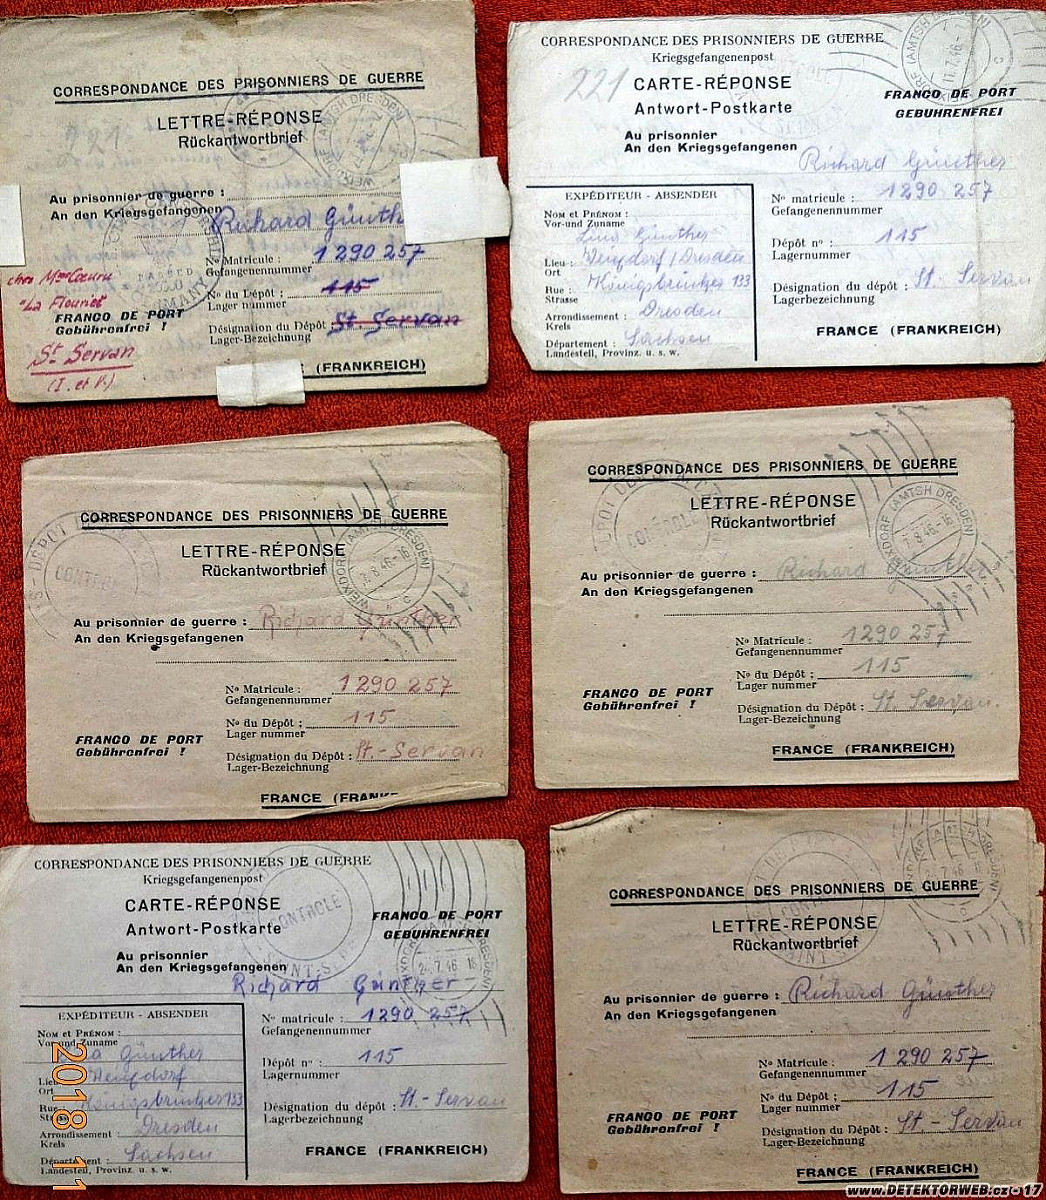 CORRESPONDANCE DES PRISONNIERS DE GUERRE
LETTRE-RÉPONSE
Rückantwortbrief
221
Au prisonnier de guerre :
An den Kriegsgefangenen
Richard Günth
No Matricule : 1290 257
Gefangenennummer
chez Mme Cœuru
No du Dépôt : 115
Lager nummer
"La Flourie"
FRANCO DE PORT
Gebührenfrei !
Désignation du Dépôt St. Servan
Lager-Bezeichnung
St Servan
(I. et V.)
(FRANKREICH)
CORRESPONDANCE DES PRISONNIERS DE GUERRE
Kriegsgefangenenpost
221
CARTE-RÉPONSE
Antwort-Postkarte
11.7.46
FRANCO DE PORT
GEBÜHRENFREI
Au prisonnier
An den Kriegsgefangenen
Richard Günther
EXPÉDITEUR - ABSENDER
Nom et Prénom :
Vor-und Zuname
Lina Günther
Lieu :
Ort
/Dresden
Rue : Königsbrücker 133
Strasse
Arrondissement : Dresden
Kreis
Département : Sachsen
Landesteil, Provinz. u. s. w.
No matricule : 1290 257
Gefangenennummer
Dépôt no : 115
Lagernummer
Désignation du dépôt : St- Servan
Lagerbezeichnung
FRANCE (FRANKREICH)
CORRESPONDANCE DES PRISONNIERS DE GUERRE
LETTRE-RÉPONSE
Rückantwortbrief
CONTROLE
WEIXDORF (AMTSH DRESDEN)
Au prisonnier de guerre : Richard Günther
An den Kriegsgefangenen
No Matricule : 1290 257
Gefangenennummer
No du Dépôt : 115
Lager nummer
FRANCO DE PORT
Gebührenfrei !
Désignation du Dépôt : St.-Servan
Lager-Bezeichnung
FRANCE (FRANK
CORRESPONDANCE DES PRISONNIERS DE GUERRE
LETTRE-RÉPONSE
Rückantwortbrief
CONTROLE
WEIXDORF (AMTSH DRESDEN)
Au prisonnier de guerre : Richard Günther
An den Kriegsgefangenen
No Matricule : 1290 257
Gefangenennummer
No du Dépôt : 115
Lager nummer
FRANCO DE PORT
Gebührenfrei !
Désignation du Dépôt : St. Servan.
Lager-Bezeichnung
FRANCE (FRANKREICH)
CORRESPONDANCE DES PRISONNIERS DE GUERRE
Kriegsgefangenenpost
CARTE-RÉPONSE
Antwort-Postkarte
CONTROLE
FRANCO DE PORT
GEBÜHRENFREI
Au prisonnier
An den Kriegsgefangenen
Richard Günther
EXPÉDITEUR - ABSENDER
Nom et Prénom :
Vor-und Zuname
Günther
Lieu
Ort
Rue Königsbrücker 133
Strasse
Arrondissement : Dresden
Kreis
Département : Sachsen
Landesteil, Provinz. u. s. w.
No matricule : 1290 257
Gefangenennummer
Dépôt no : 115
Lagernummer
Désignation du dépôt : St.- Servan
Lagerbezeichnung
FRANCE (FRANKREICH)
2018 11
CORRESPONDANCE DES PRISONNIERS DE GUERRE
LETTRE-RÉPONSE
Rückantwortbrief
Au prisonnier de guerre : Richard Günther
An den Kriegsgefangenen
No Matricule : 1 290 257
Gefangenennummer
No du Dépôt : 115
Lager nummer
FRANCO DE PORT
Gebührenfrei !
Désignation du Dépôt : St. - Servan
Lager-Bezeichnung
FRANCE (FRANKREICH)
www.DETEKTORWEB.cz - 17